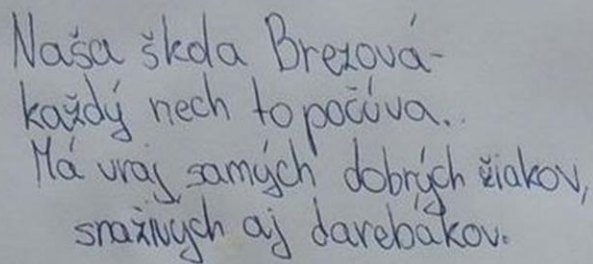 Naša škola Brezová-
každý nech to počúva..
Má vraj samých dobrých žiakov,
snaživých aj darebákov.